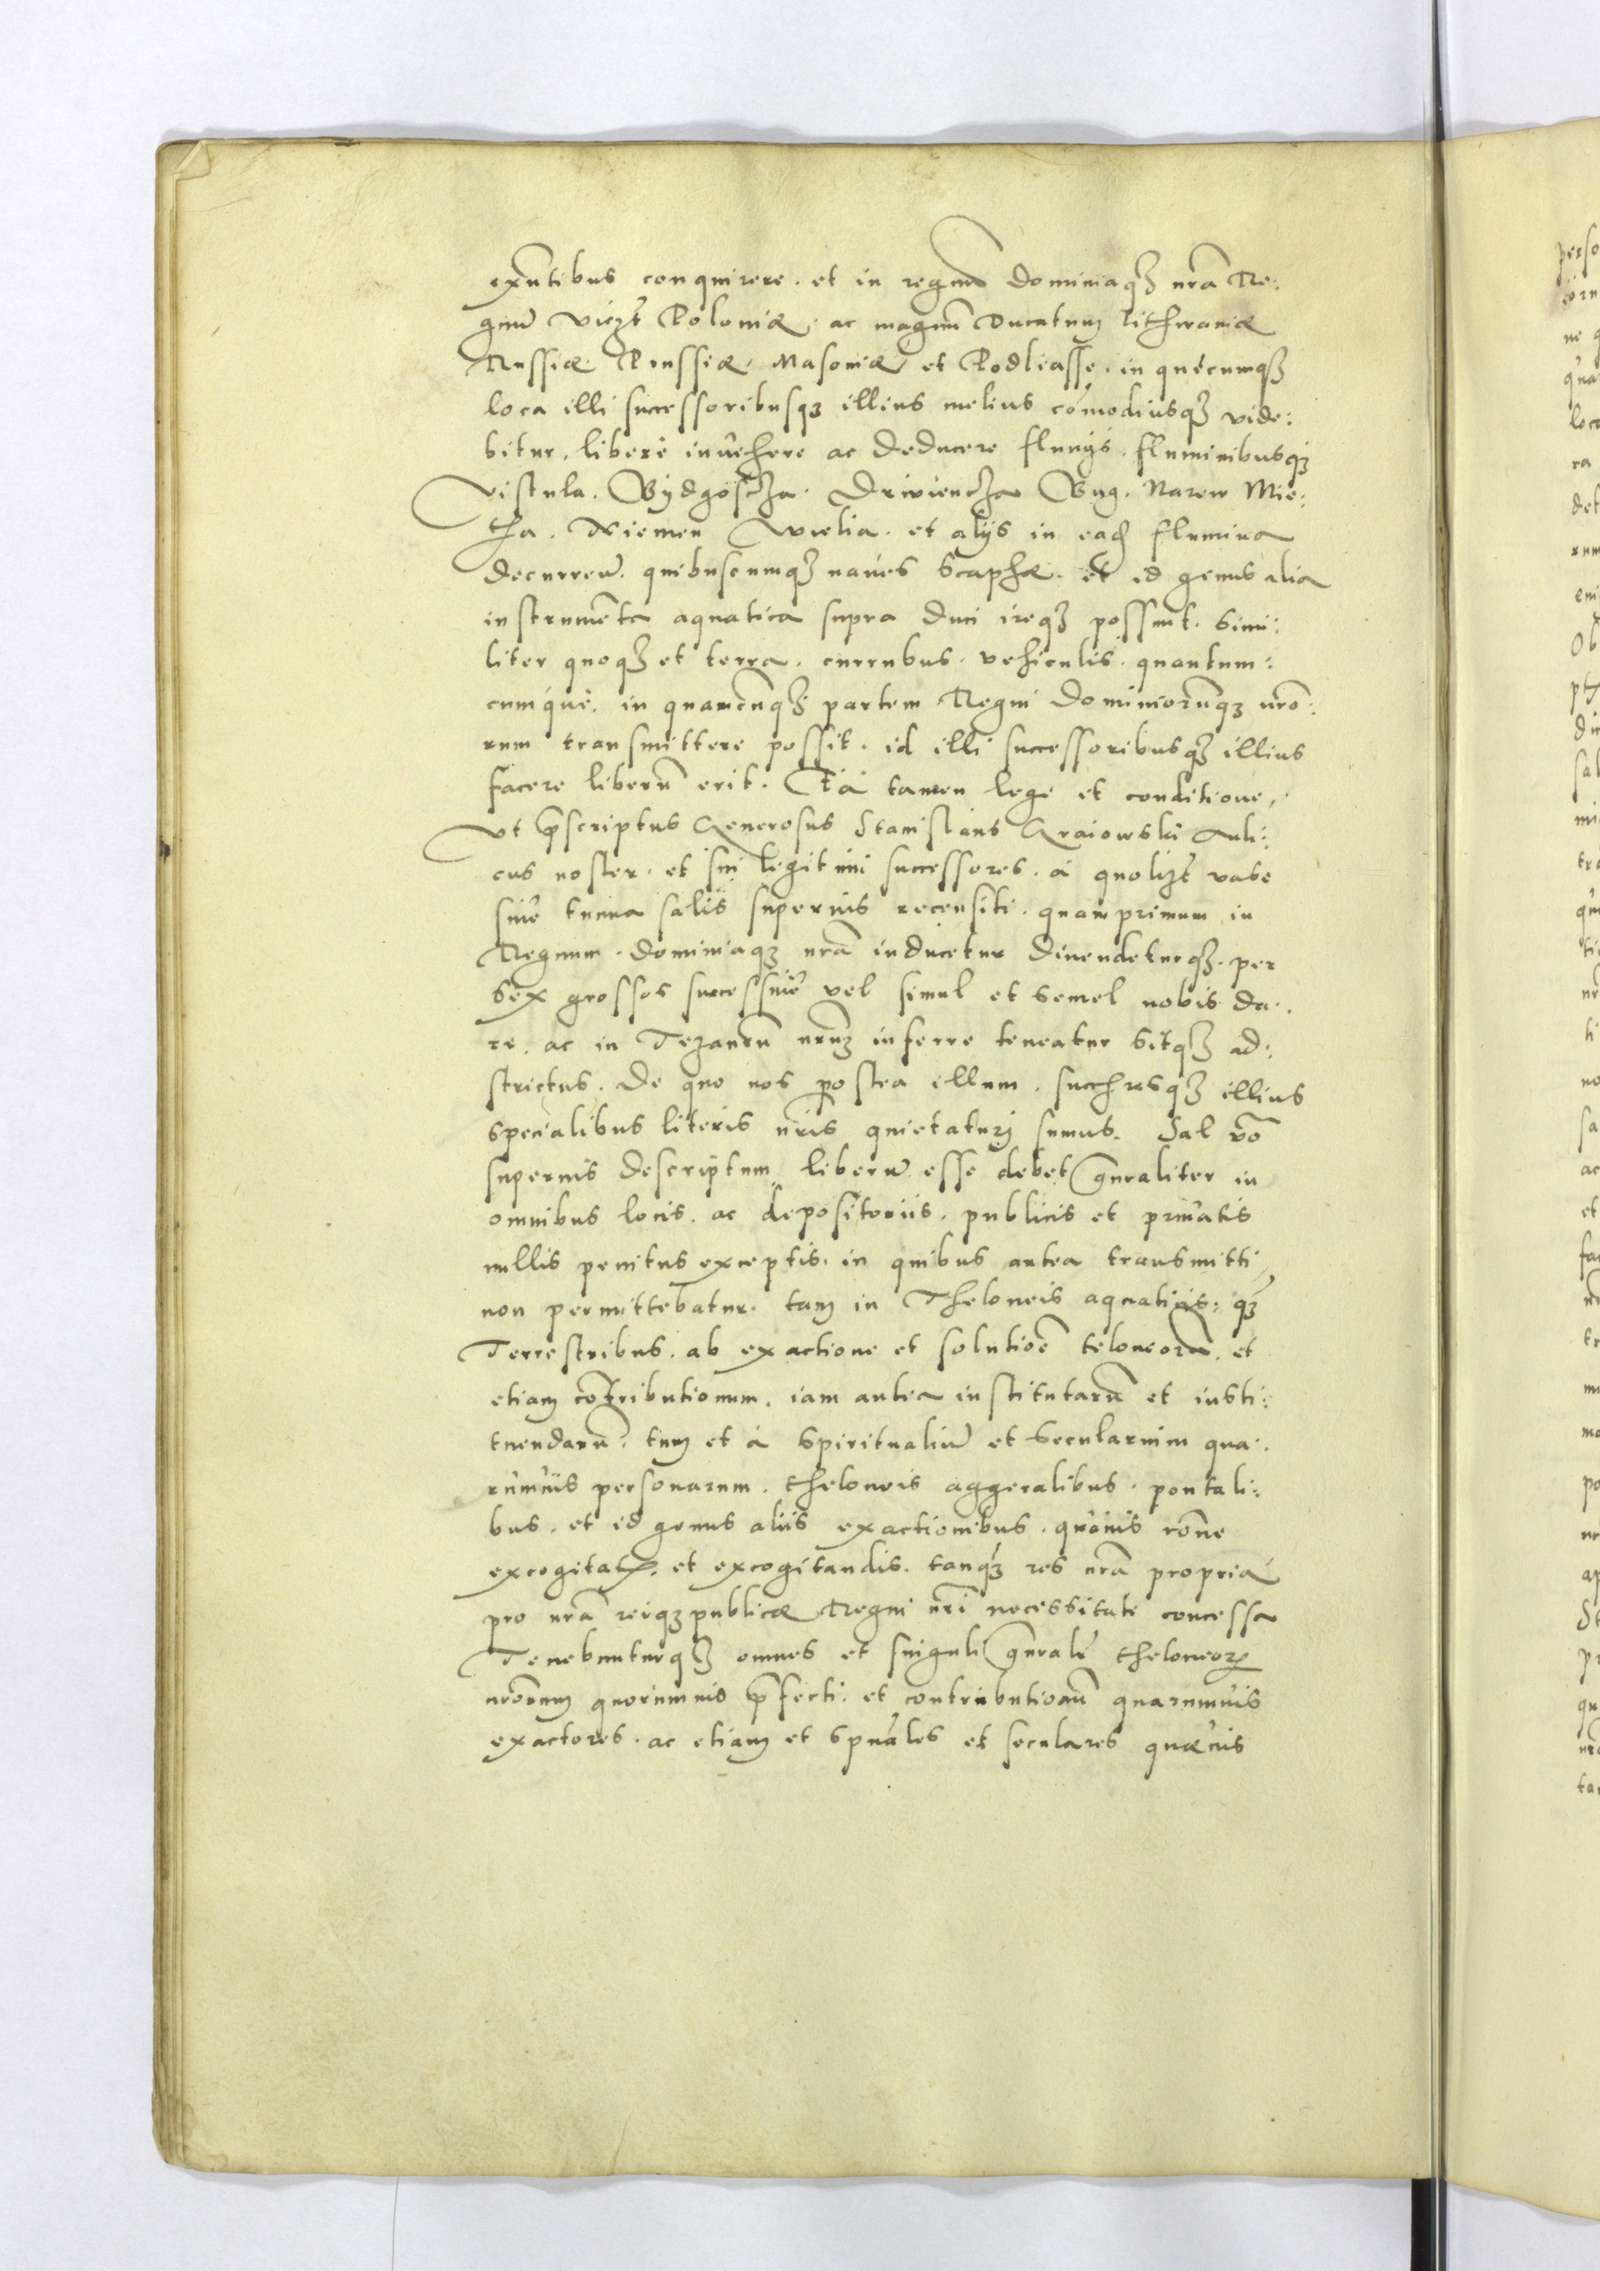 exn̄tibus conquirere. et in regnū dominiaqꝫ nrā Re:
gnū vicꝫt Poloniæ. ac magnū Ducatum Lithwaniæ
Russiæ Prussiæ, Masoviæ et Podliasse. in quecumqꝫ
loca illi successoribusqꝫ illius melius comodiusqꝫ vide:
bitur. libere inuehere ac deducere fluuijs. fluminibusqꝫ
Vistula. Bydgosczha. Drwienczha Bug. Narew Mie:
tha. Niemen Wielia. et alijs in eadē flumina
decurren̄. quibuscumqꝫ naues scaphæ. et id genus alia
instrumēta aquatica supra duci ireqꝫ possunt. Simi:
liter quoqꝫ et terra. curribus. vehiculis. quantum:
cumque. in quamcūqꝫ partem Regni dominiorūqꝫ nrō:
rum transmittere possit. id illi successoribusqꝫ illius
facere liberū erit. Ea tamen lege et conditione,
Vt p̄scriptus Generosus Stanislaus Graiowski Auli:
cus noster. et sui legitimi successores. à quolizt vase
siue tunna salis superius recensiti. quamprimum in
Regnum. dominiaqꝫ nrā inducetur diuendeturqꝫ. per
sex grossos successiue vel simul et semel nobis da:
re. ac in Tezaurū nrūm inferre teneatur sitqꝫ ad:
strictus. De quo nos postea illum. succhresqꝫ illius
specialibus literis nrīs quietaturi sumus. Sal vō
superius descriptum liberū esse debet gnraliter in
omnibus locis. ac depositoriis. publicis et priuatis
nullis penitus exceptis. in quibus antea transmitti
non permittebatur. tam in Theloneis aquaticis: qꝫ
Terrestribus. ab exactione et solutioē teloneorū. et
etiam cōtributionum. iam antea institutarū et insti:
tuendarū. tum et à Spiritualiū et secularium qua:
rumuis personarum. theloneis aggeralibus. pontali:
bus. et id genus aliis exactionibus. quouis rōne
excogitatis. et excogitandis. tanqꝫ res nrā propria
pro nrā reiqꝫ publicæ Regni nrī necessitate concessa
Tenebunturqꝫ omnes et singuli gnrales theloneorꝫ
nrōrum quorumuis p̄fecti. et contributionū quarumuis
exactores. ac etiam et spūales et seculares quæuis